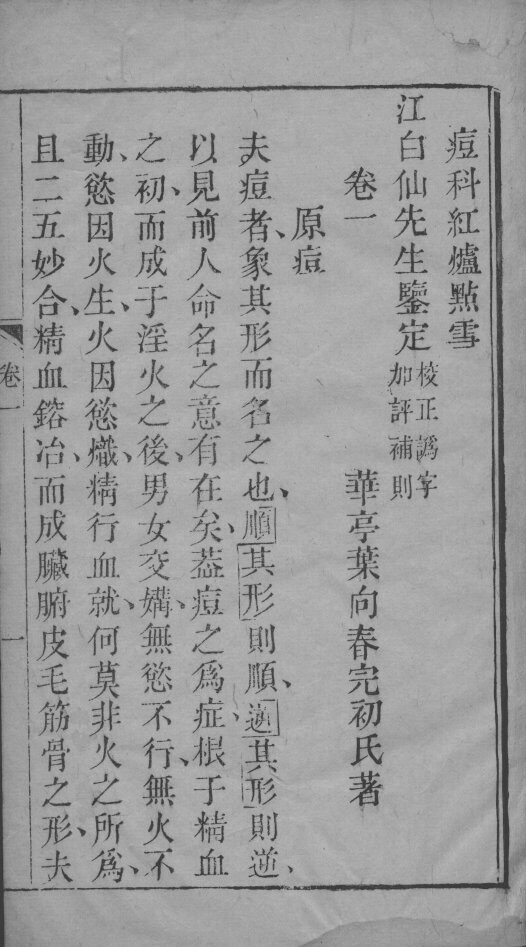 痘科紅爐點雪
江白仙先生鑒定
校正譌字
加評補則
卷一
華亭葉向春完初氏著
原痘
夫痘者、象其形而名之也、順其形則順、逆其形則逆、
以見前人命名之意有在矣、葢痘之爲症、根于精血
之初、而成于淫火之後、男女交媾、無慾不行、無火不
動、慾因火生、火因慾熾、精行血就、何莫非火之所爲、
且二五妙合、精血鎔冶、而成臟腑皮毛筋骨之形、夫
卷一
一